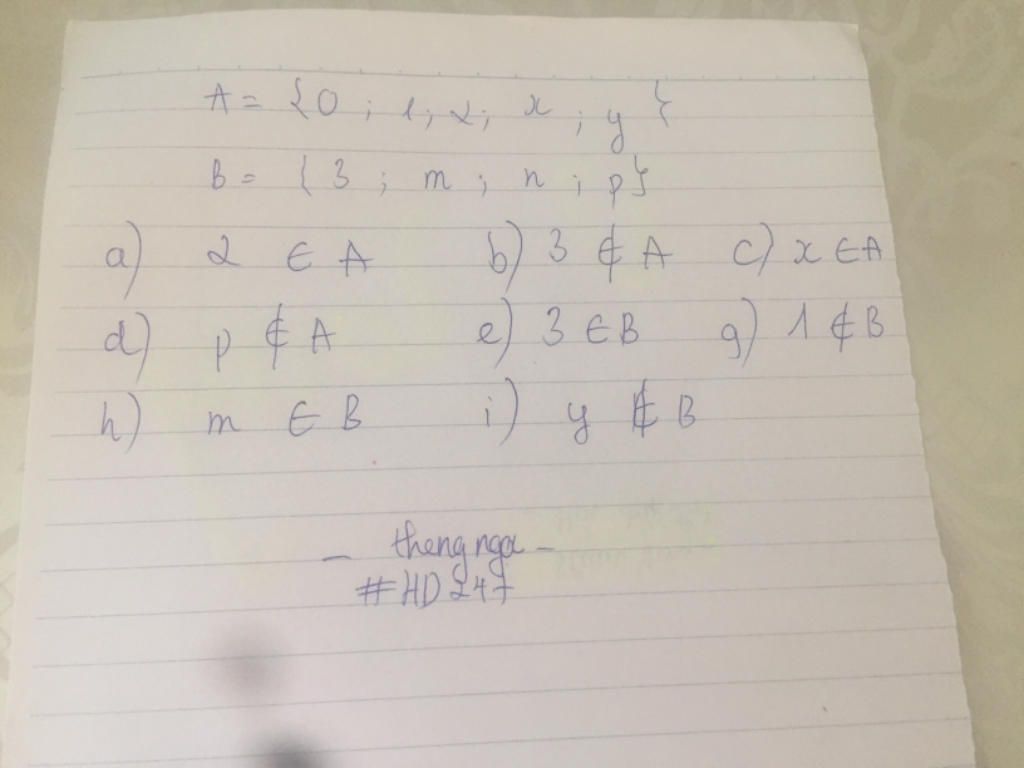 A = {0 ; 1 ; 2 ; x ; y}
B = {3 ; m ; n ; p}
a) 2 ∈ A b) 3 ∉ A c) x ∈ A
d) p ∉ A e) 3 ∈ B g) 1 ∉ B
h) m ∈ B i) y ∉ B
- thengnga -
#HD247